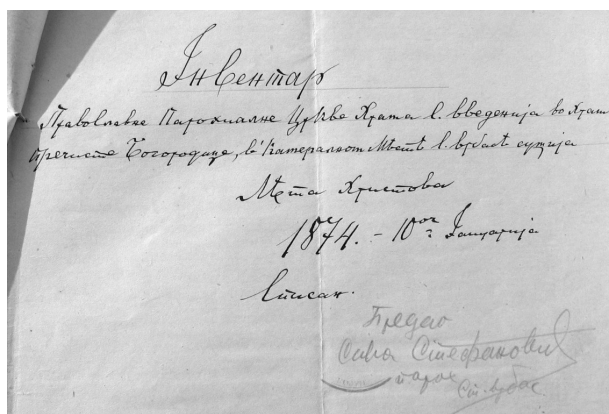 Инвентар
Православне Парохиалне Цркве Храма С. Введенија во Храм
Пречисте Богородице, в Камералном Мѣстѣ С. Врбасѣ сущија
Лѣта Христова
1874. - 10ог Јануарија
Списан.
Предао
Сава Стефановић
парох
Ст. Врбас